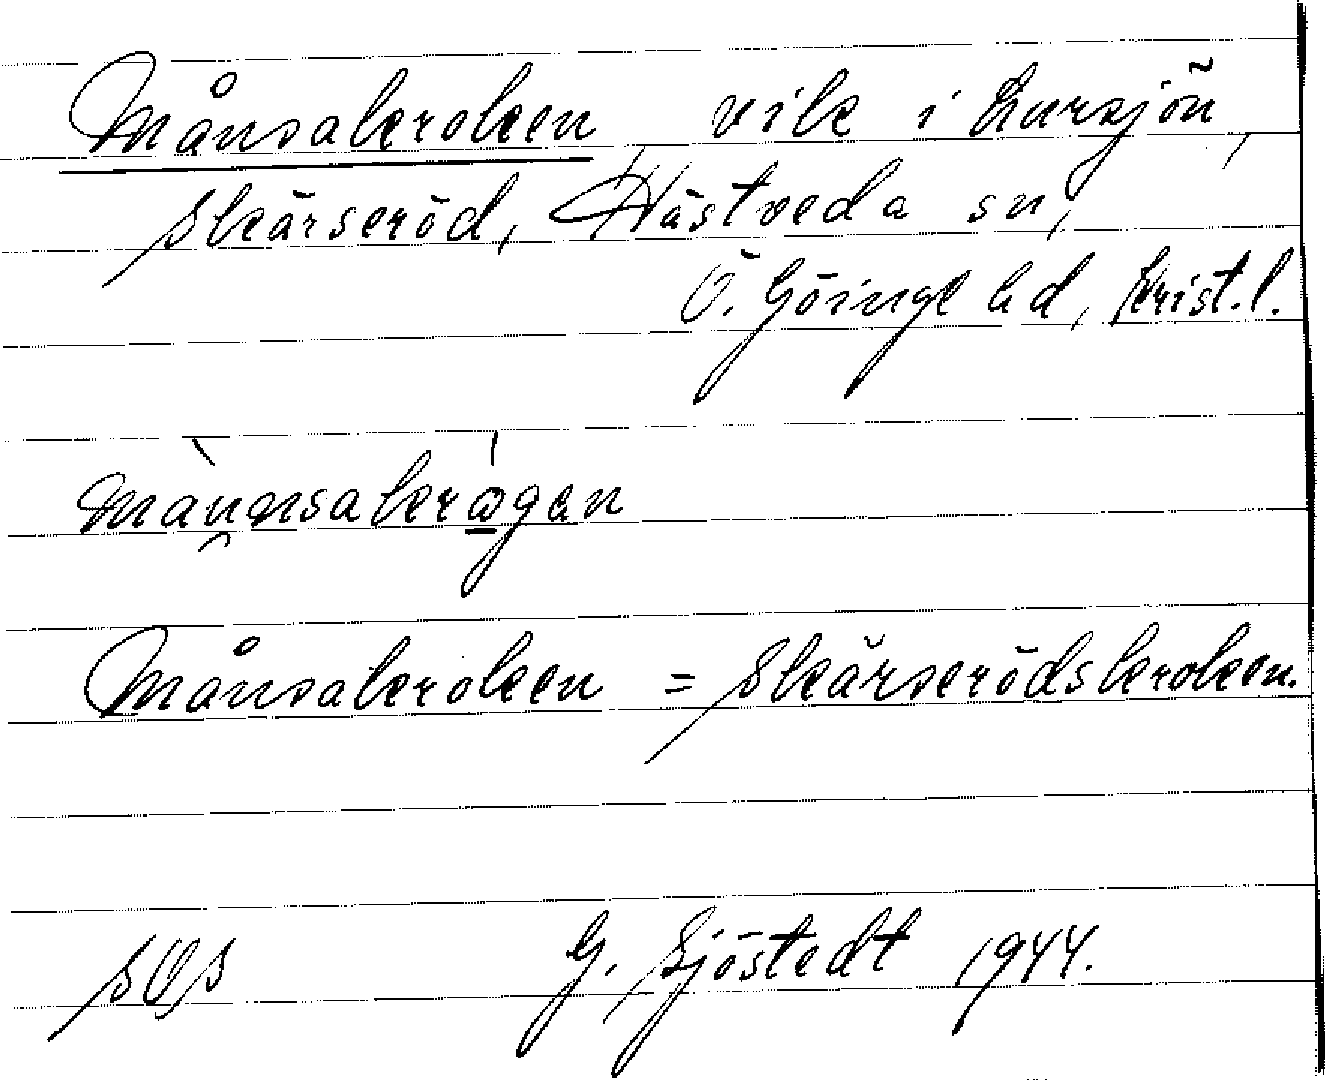 Månsakroken vik i Lursjön,
Skärseröd, Hästveda sn,
Ö. Göinge hd, Krist.l.
Månsakroken = Skärserödskroken.
SOS G. Sjöstedt 1944.